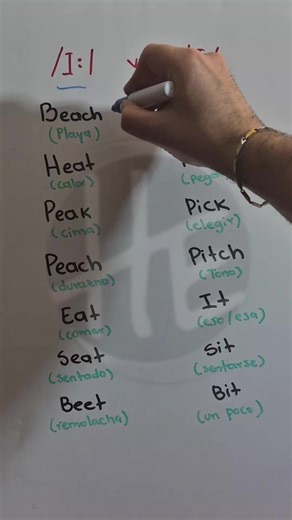 /I:/ v
Beach
(playa)
Heat
(calor) (pegar
Peak Pick
(cima) (elegir)
Peach Pitch
(durazno) (Tono)
Eat It
(comer) (eso/esa)
Seat Sit
(sentado) (sentarse)
Beet Bit
(remolacha) (un poco)